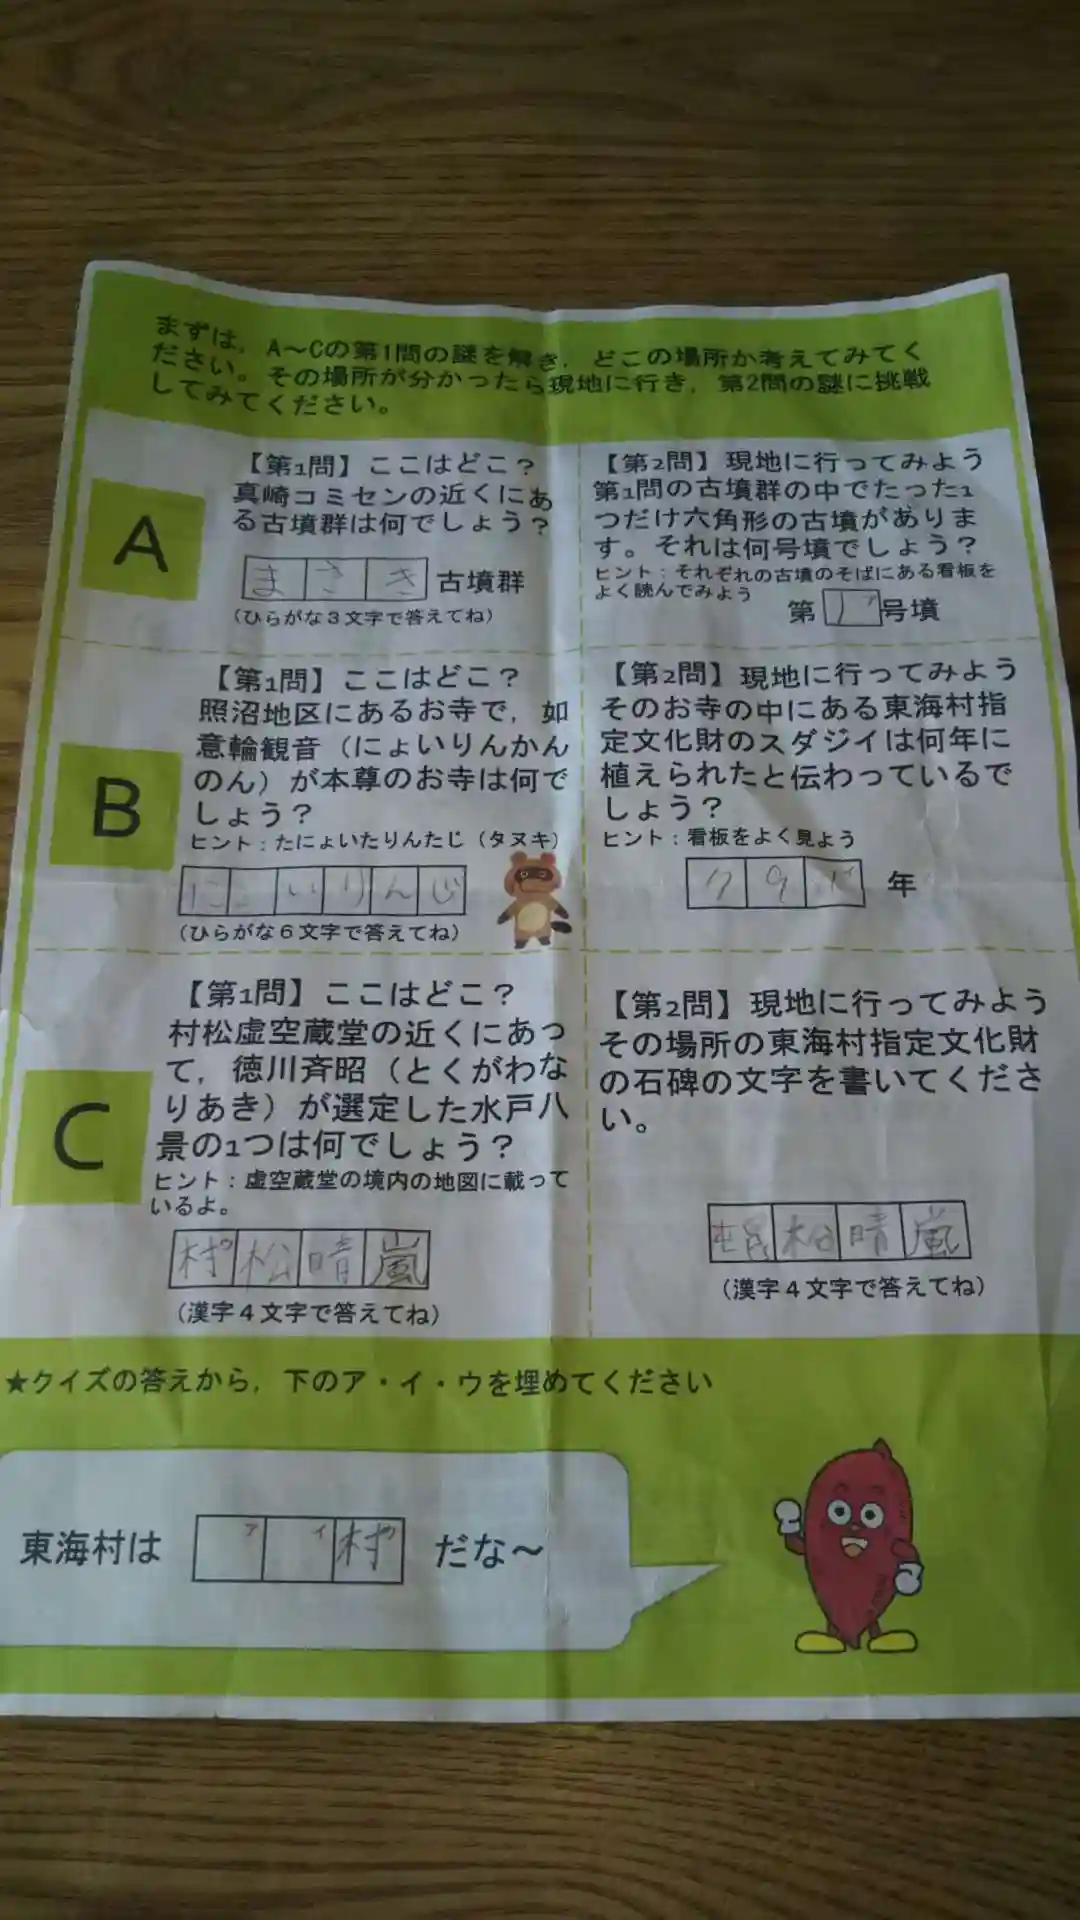 まずは，A～Cの第1問の謎を解き，どこの場所か考えてみてく
ださい。その場所が分かったら現地に行き，第2問の謎に挑戦
してみてください。
A
【第1問】ここはどこ？
真崎コミセンの近くにあ
る古墳群は何でしょう？
まさき 古墳群
（ひらがな３文字で答えてね）
【第2問】現地に行ってみよう
第1問の古墳群の中でたった1
つだけ六角形の古墳がありま
す。それは何号墳でしょう？
ヒント：それぞれの古墳のそばにある看板を
よく読んでみよう
第 号墳
B
【第1問】ここはどこ？
照沼地区にあるお寺で，如
意輪観音（にょいりんかん
のん）が本尊のお寺は何で
しょう？
ヒント：たにょいたりんたじ（タヌキ）
にょいりんじ
（ひらがな６文字で答えてね）
【第2問】現地に行ってみよう
そのお寺の中にある東海村指
定文化財のスダジイは何年に
植えられたと伝わっているで
しょう？
ヒント：看板をよく見よう
年
C
【第1問】ここはどこ？
村松虚空蔵堂の近くにあっ
て，徳川斉昭（とくがわな
りあき）が選定した水戸八
景の1つは何でしょう？
ヒント：虚空蔵堂の境内の地図に載って
いるよ。
村ウ松晴嵐
（漢字４文字で答えてね）
【第2問】現地に行ってみよう
その場所の東海村指定文化財
の石碑の文字を書いてくださ
い。
晴嵐
（漢字４文字で答えてね）
★クイズの答えから，下のア・イ・ウを埋めてください
東海村は ア イ 村ウ だな～